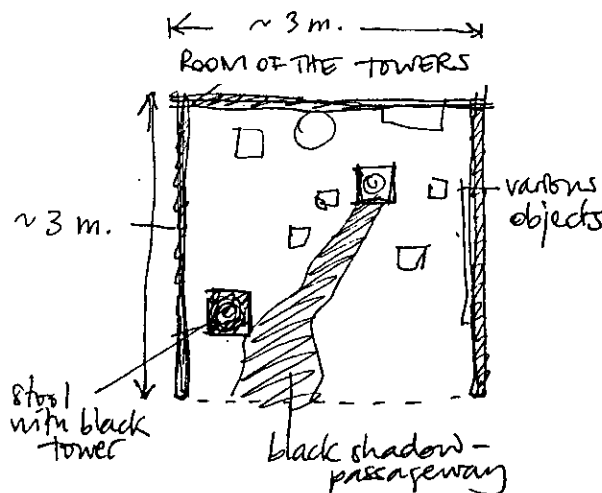 ~ 3 m.
ROOM OF THE TOWERS
~ 3 m.
various
objects
stool
with black
tower
black shadow-
passageway